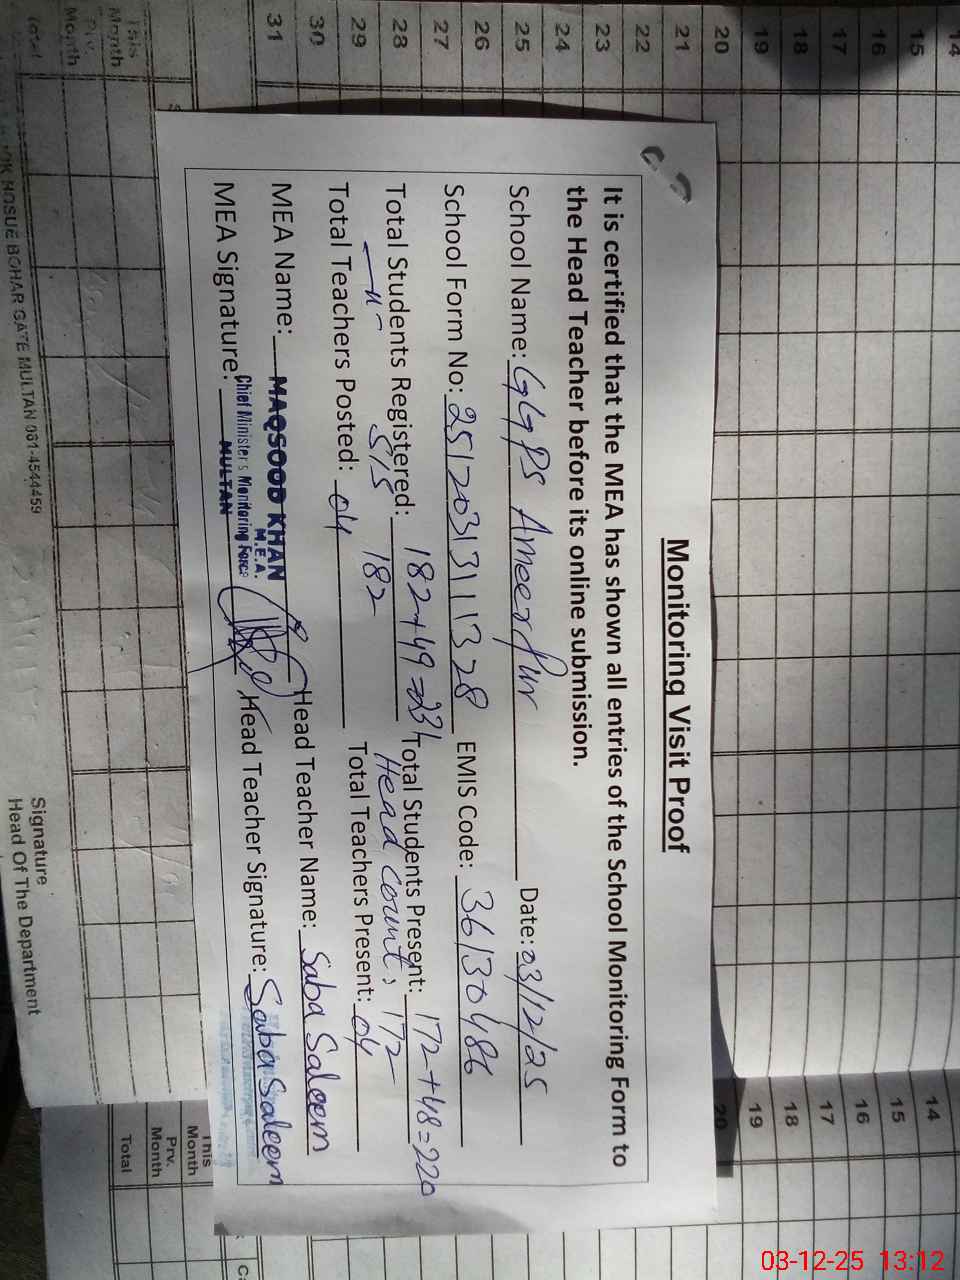 Monitoring Visit Proof
It is certified that the MEA has shown all entries of the School Monitoring Form to
the Head Teacher before its online submission.
School Name: GGPS Ameerpur Date: 03/12/25
School Form No: 2512031311328 EMIS Code: 36130486
Total Students Registered: 182+49=231 Total Students Present: 172+48=220
SIS 182 Head count: 172
Total Teachers Posted: 04 Total Teachers Present: 04
MEA Name: MAQSOOD KHAN Head Teacher Name: Saba Saleem
M.E.A.
Chief Minister's Monitoring Force
MULTAN
MEA Signature: Head Teacher Signature: Saba Saleem
14
15
16
17
18
19
20
21
22
23
24
25
26
27
28
29
30
31
This Month
Prv. Month
Total
HOSUE BOHAR GATE MULTAN 061-4544459
Signature
Head Of The Department
14
15
16
17
18
19
20
This Month
Prv. Month
Total
03-12-25 13:12